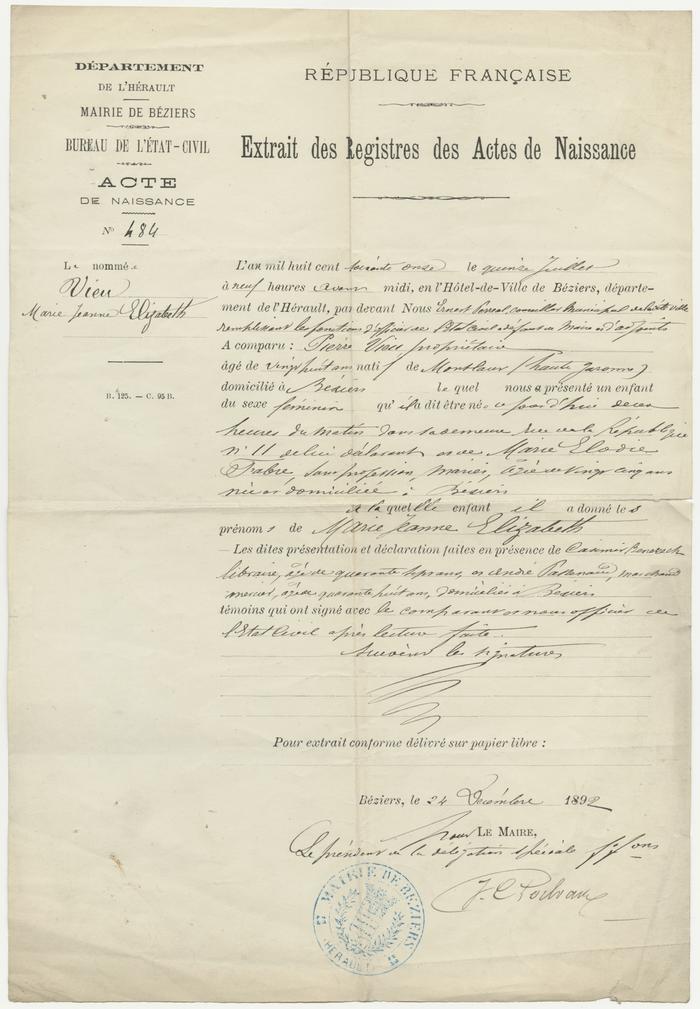 DÉPARTEMENT
DE L'HÉRAULT
MAIRIE DE BÉZIERS
BUREAU DE L'ÉTAT-CIVIL
ACTE
DE NAISSANCE
N° 484
Le nommée
Vieu
Marie Jeanne Elizabeth
B. 125. — C. 95 B.
RÉPUBLIQUE FRANÇAISE
Extrait des Registres des Actes de Naissance
L'an mil huit cent soixante onze le quinze Juillet
à neuf heures avant midi, en l'Hôtel-de-Ville de Béziers, départe-
ment de l'Hérault, par devant Nous Ernest conseiller Municipal de ladite ville
remplissant les fonctions d'officier de l'Etat Civil à défaut de Maire et d'adjoints
A comparu : Pierre Vieu propriétaire
âgé de vingt huit ans natif de Montlaur (haute garonne)
domicilié à Béziers lequel nous a présenté un enfant
du sexe féminin qu'il a dit être née ce jourd'hui deux
heures du matin dans sa demeure rue de la République
n° 11 de lui déclarant et de Marie Elodie
Fabre, sans profession, mariés, âgée de vingt cinq ans
née et domiciliée à Béziers
à laquelle enfant il a donné les
prénoms de Marie Jeanne Elizabeth
— Les dites présentation et déclaration faites en présence de Casimir
libraire, âgé de quarante sept ans, et André marchand
mercier, âgé de quarante huit ans, domiciliés à Béziers
témoins qui ont signé avec le comparant et nous officier de
l'Etat Civil après lecture faite.
Suivent les signatures
Pour extrait conforme délivré sur papier libre :
Béziers, le 24 Décembre 1892
Pour LE MAIRE,
Le président de la délégation spéciale ff ons
MAIRIE DE BÉZIERS
(HÉRAULT)